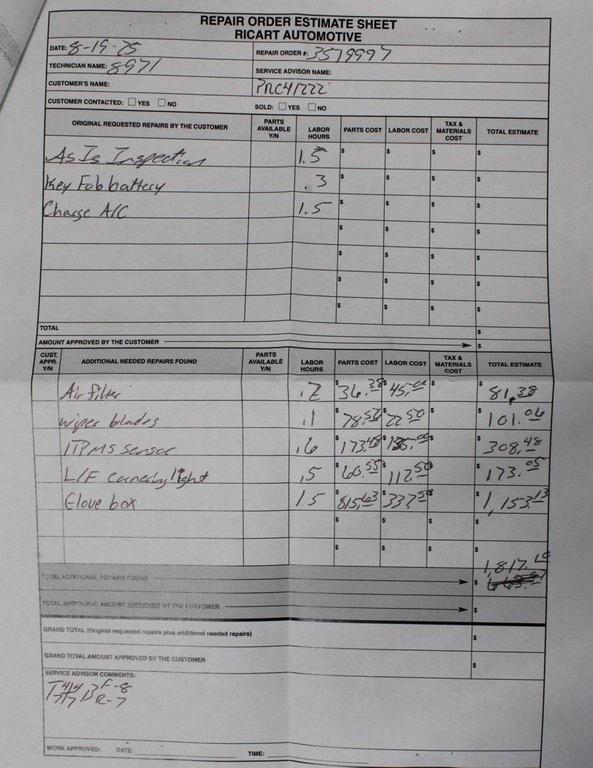 REPAIR ORDER ESTIMATE SHEET
RICART AUTOMOTIVE
DATE: 8-19-25 REPAIR ORDER #: 3519997
TECHNICIAN NAME: 8971 SERVICE ADVISOR NAME:
CUSTOMER'S NAME: PRC41222
CUSTOMER CONTACTED: ☐ YES ☐ NO SOLD: ☐ YES ☐ NO
ORIGINAL REQUESTED REPAIRS BY THE CUSTOMER PARTS AVAILABLE Y/N LABOR HOURS PARTS COST LABOR COST TAX & MATERIALS COST TOTAL ESTIMATE
As Is Inspection 1.5 $ $ $ $
Key Fob battery .3 $ $ $ $
Charge A/C 1.5 $ $ $ $
$ $ $ $
$ $ $ $
$ $ $ $
$ $ $ $
TOTAL $
AMOUNT APPROVED BY THE CUSTOMER $
CUST. APPR. Y/N ADDITIONAL NEEDED REPAIRS FOUND PARTS AVAILABLE Y/N LABOR HOURS PARTS COST LABOR COST TAX & MATERIALS COST TOTAL ESTIMATE
Air filter .2 $36.38 $45.00 $ $81.38
wiper blades .1 $78.56 $22.50 $ $101.06
1TPMS sensor .6 $173.48 $135.00 $ $308.48
L/F cornering light .5 $60.55 $112.50 $ $173.05
Glove box 1.5 $815.63 $337.50 $ $1,153.13
$ $ $ $
$ $ $ 1,817.10
TOTAL ADDITIONAL REPAIRS FOUND $
TOTAL ADDITIONAL AMOUNT APPROVED BY THE CUSTOMER $
GRAND TOTAL (Original requested repairs plus additional needed repairs) $
GRAND TOTAL AMOUNT APPROVED BY THE CUSTOMER $
SERVICE ADVISOR COMMENTS:
T 4/4 B F-8
7/7 R-7
WORK APPROVED: DATE: TIME: